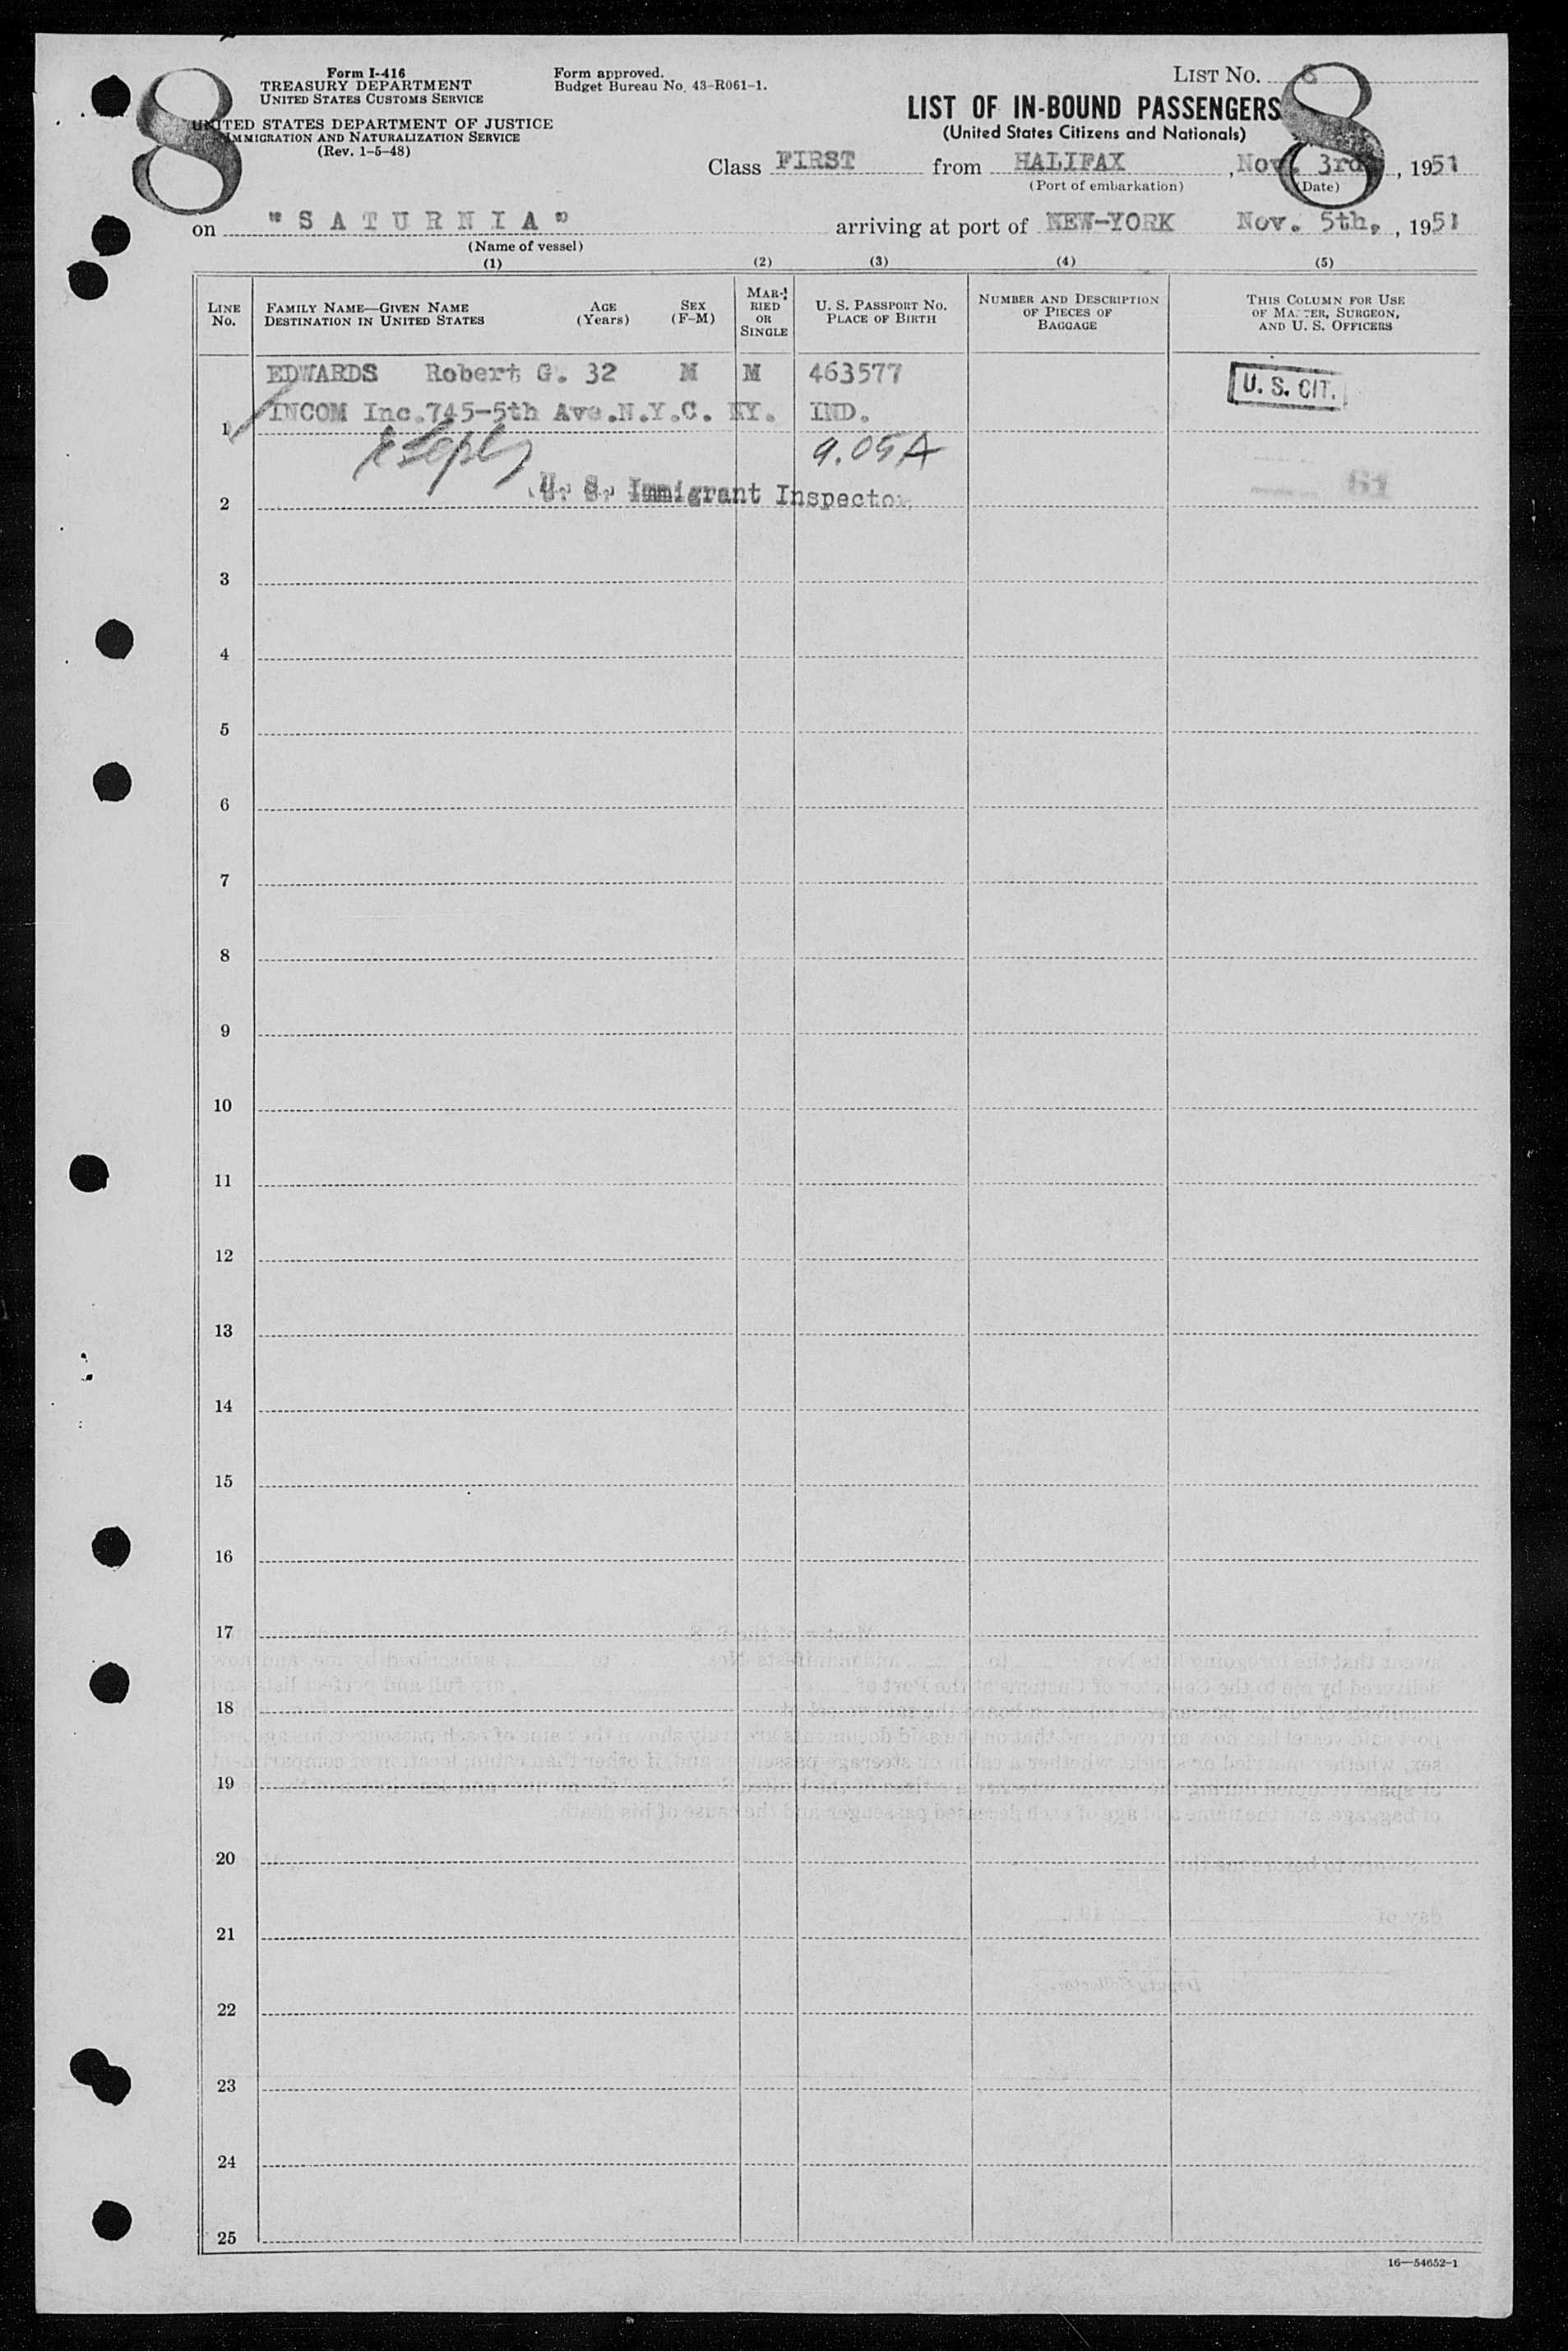 8
Form I-416
TREASURY DEPARTMENT
UNITED STATES CUSTOMS SERVICE
UNITED STATES DEPARTMENT OF JUSTICE
IMMIGRATION AND NATURALIZATION SERVICE
(Rev. 1-5-48)
Form approved.
Budget Bureau No. 43-R061-1.
LIST No. 8
8
LIST OF IN-BOUND PASSENGERS
(United States Citizens and Nationals)
Class FIRST from HALIFAX, Nov. 3rd, 1951
(Port of embarkation) (Date)
on "SATURNIA" arriving at port of NEW-YORK Nov. 5th, , 1951
(Name of vessel)
(1) (2) (3) (4) (5)
LINE No.
FAMILY NAME—GIVEN NAME
DESTINATION IN UNITED STATES
AGE (Years)
SEX (F-M)
MARRIED OR SINGLE
U. S. PASSPORT No.
PLACE OF BIRTH
NUMBER AND DESCRIPTION OF PIECES OF BAGGAGE
THIS COLUMN FOR USE OF MASTER, SURGEON, AND U. S. OFFICERS
EDWARDS Robert G. 32 M M 463577 U. S. CIT.
1 INCOM Inc.745-5th Ave.N.Y.C. NY. IND.
9.05A
2 U. S. Immigrant Inspector 61
3
4
5
6
7
8
9
10
11
12
13
14
15
16
17
18
19
20
21
22
23
24
25
16—54652-1